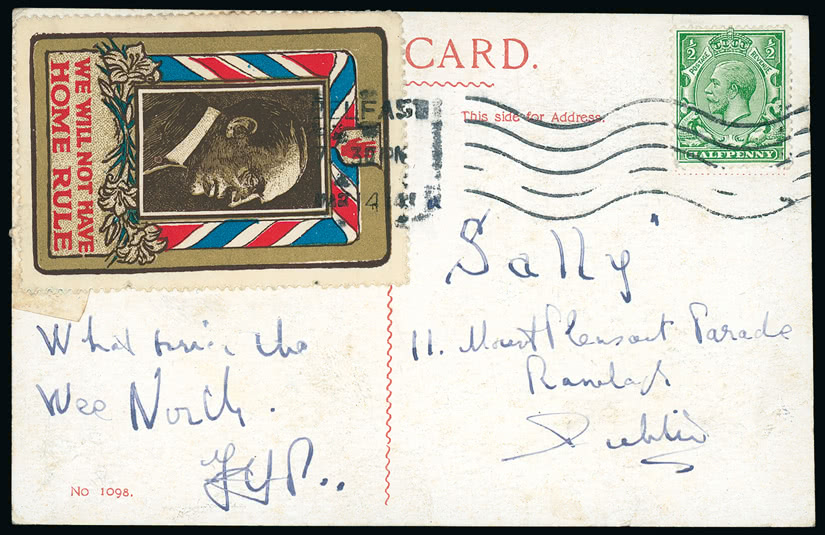 WE WILL NOT HAVE
HOME RULE
CARD.
This side for Address.
½ POSTAGE REVENUE ½
HALFPENNY
30 PM
4
Sally
11. Mount Pleasant Parade
Ranelagh
Dublin
What the
Wee North.
No 1098.